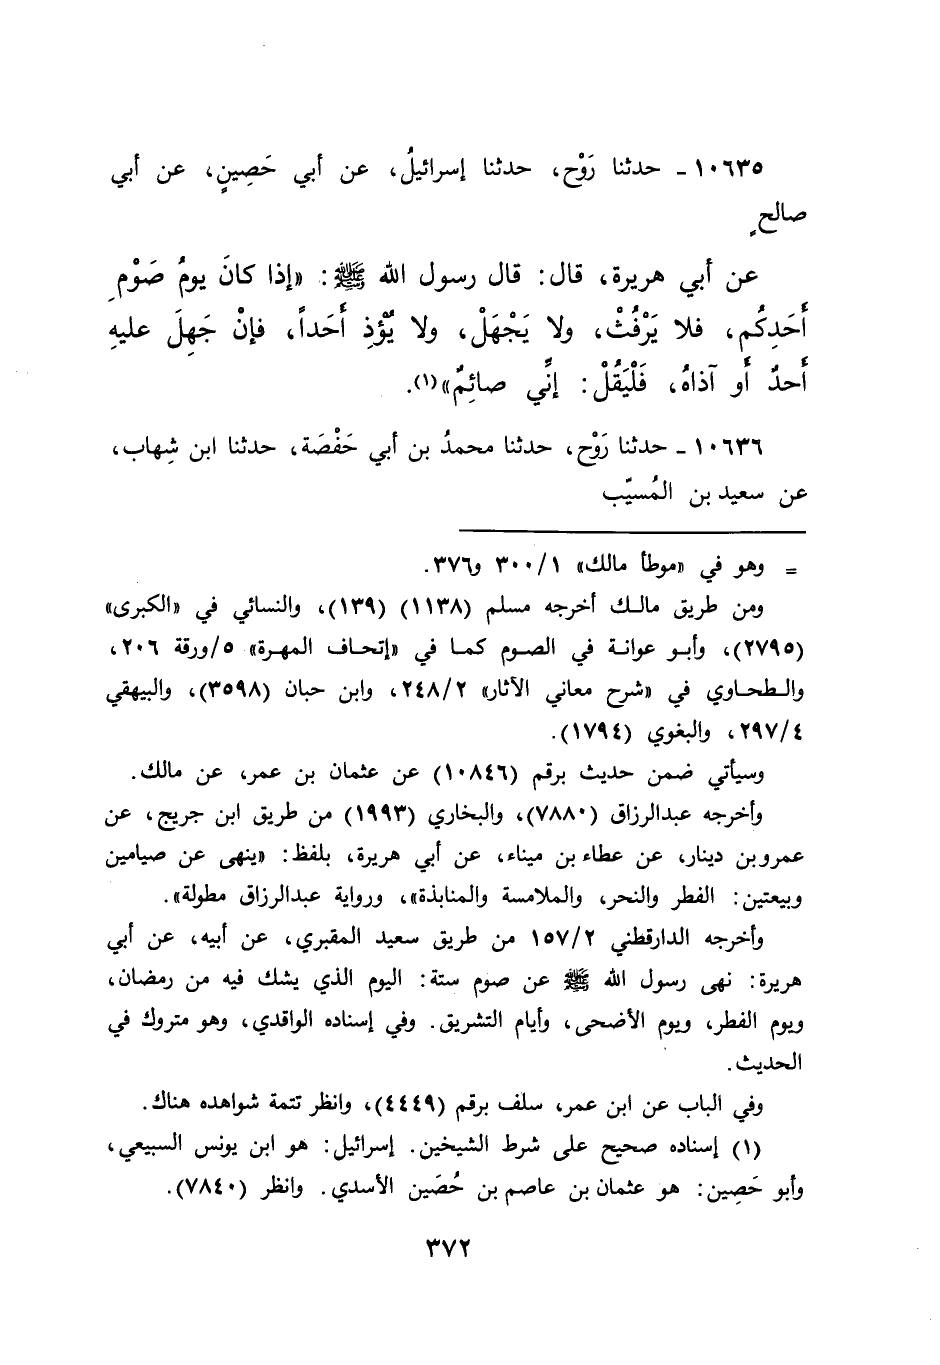 ١٠٦٣٥ - حدثنا رَوْح، حدثنا إسرائيلُ، عن أبي حَصِينٍ، عن أبي
صالحٍ
عن أبي هريرة، قال: قال رسول الله ﷺ: «إذا كانَ يومُ صَوْمِ
أَحَدِكُم، فلا يَرْفُثْ، ولا يَجْهَلْ، ولا يُؤْذِ أَحَداً، فإنْ جَهِلَ عليهِ
أَحدٌ أَو آذاهُ، فَلْيَقُلْ: إنِّي صائِمٌ»(١).
١٠٦٣٦ - حدثنا رَوْح، حدثنا محمدُ بن أبي حَفْصَة، حدثنا ابن شِهاب،
عن سعيد بن المُسيّب
= وهو في «موطأ مالك» ٣٠٠/١ و٣٧٦.
ومن طريق مالك أخرجه مسلم (١١٣٨) (١٣٩)، والنسائي في «الكبرى»
(٢٧٩٥)، وأبو عوانة في الصوم كما في «إتحاف المهرة» ٥/ورقة ٢٠٦،
والطحاوي في «شرح معاني الآثار» ٢٤٨/٢، وابن حبان (٣٥٩٨)، والبيهقي
٢٩٧/٤، والبغوي (١٧٩٤).
وسيأتي ضمن حديث برقم (١٠٨٤٦) عن عثمان بن عمر، عن مالك.
وأخرجه عبدالرزاق (٧٨٨٠)، والبخاري (١٩٩٣) من طريق ابن جريج، عن
عمرو بن دينار، عن عطاء بن ميناء، عن أبي هريرة، بلفظ: «ينهى عن صيامين
وبيعتين: الفطر والنحر، والملامسة والمنابذة»، ورواية عبدالرزاق مطولة».
وأخرجه الدارقطني ١٥٧/٢ من طريق سعيد المقبري، عن أبيه، عن أبي
هريرة: نهى رسول الله ﷺ عن صوم ستة: اليوم الذي يشك فيه من رمضان،
ويوم الفطر، ويوم الأضحى، وأيام التشريق. وفي إسناده الواقدي، وهو متروك في
الحديث.
وفي الباب عن ابن عمر، سلف برقم (٤٤٤٩)، وانظر تتمة شواهده هناك.
(١) إسناده صحيح على شرط الشيخين. إسرائيل: هو ابن يونس السبيعي،
وأبو حَصِين: هو عثمان بن عاصم بن حُصَين الأسدي. وانظر (٧٨٤٠).
٣٧٢